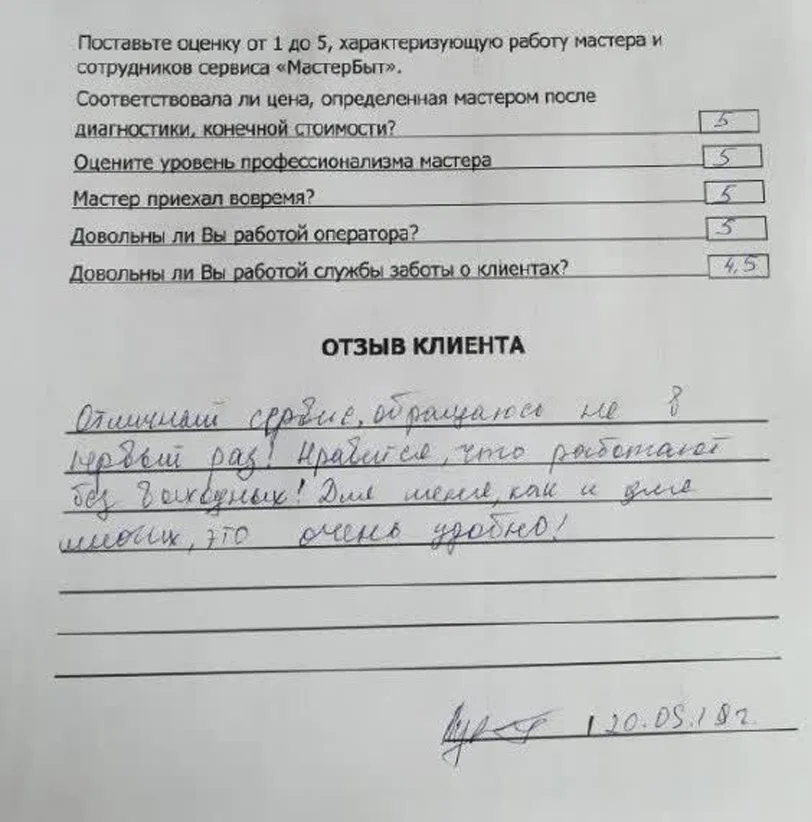 Поставьте оценку от 1 до 5, характеризующую работу мастера и
сотрудников сервиса «МастерБыт».
Соответствовала ли цена, определенная мастером после
диагностики, конечной стоимости? 5
Оцените уровень профессионализма мастера 5
Мастер приехал вовремя? 5
Довольны ли Вы работой оператора? 5
Довольны ли Вы работой службы заботы о клиентах? 4,5
ОТЗЫВ КЛИЕНТА
Отличный сервис, обращаюсь не в
первый раз! Нравится, что работают
без выходных! Для меня, как и для
многих, это очень удобно!
20.05.18г.